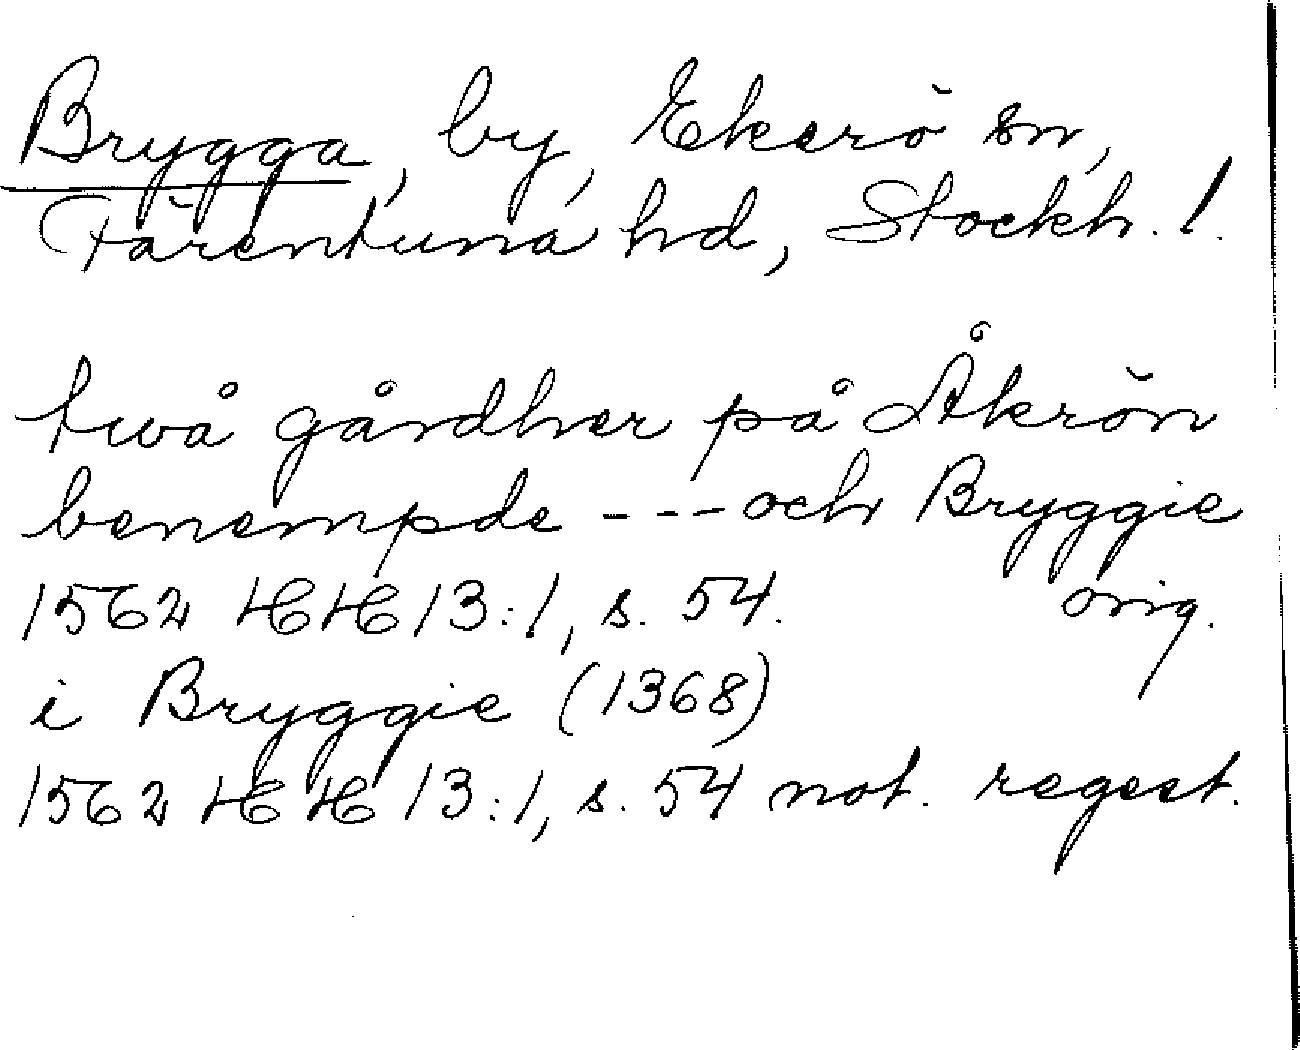 Brygga, by, Ekerö sn,
Färentuna hd, Stockh. l.
twå gårdher på Åkrön
benempde --- och Bryggie
1562 HH 13:1, s. 54. orig.
i Bryggie (1368)
1562 HH 13:1, s. 54 not. regest.